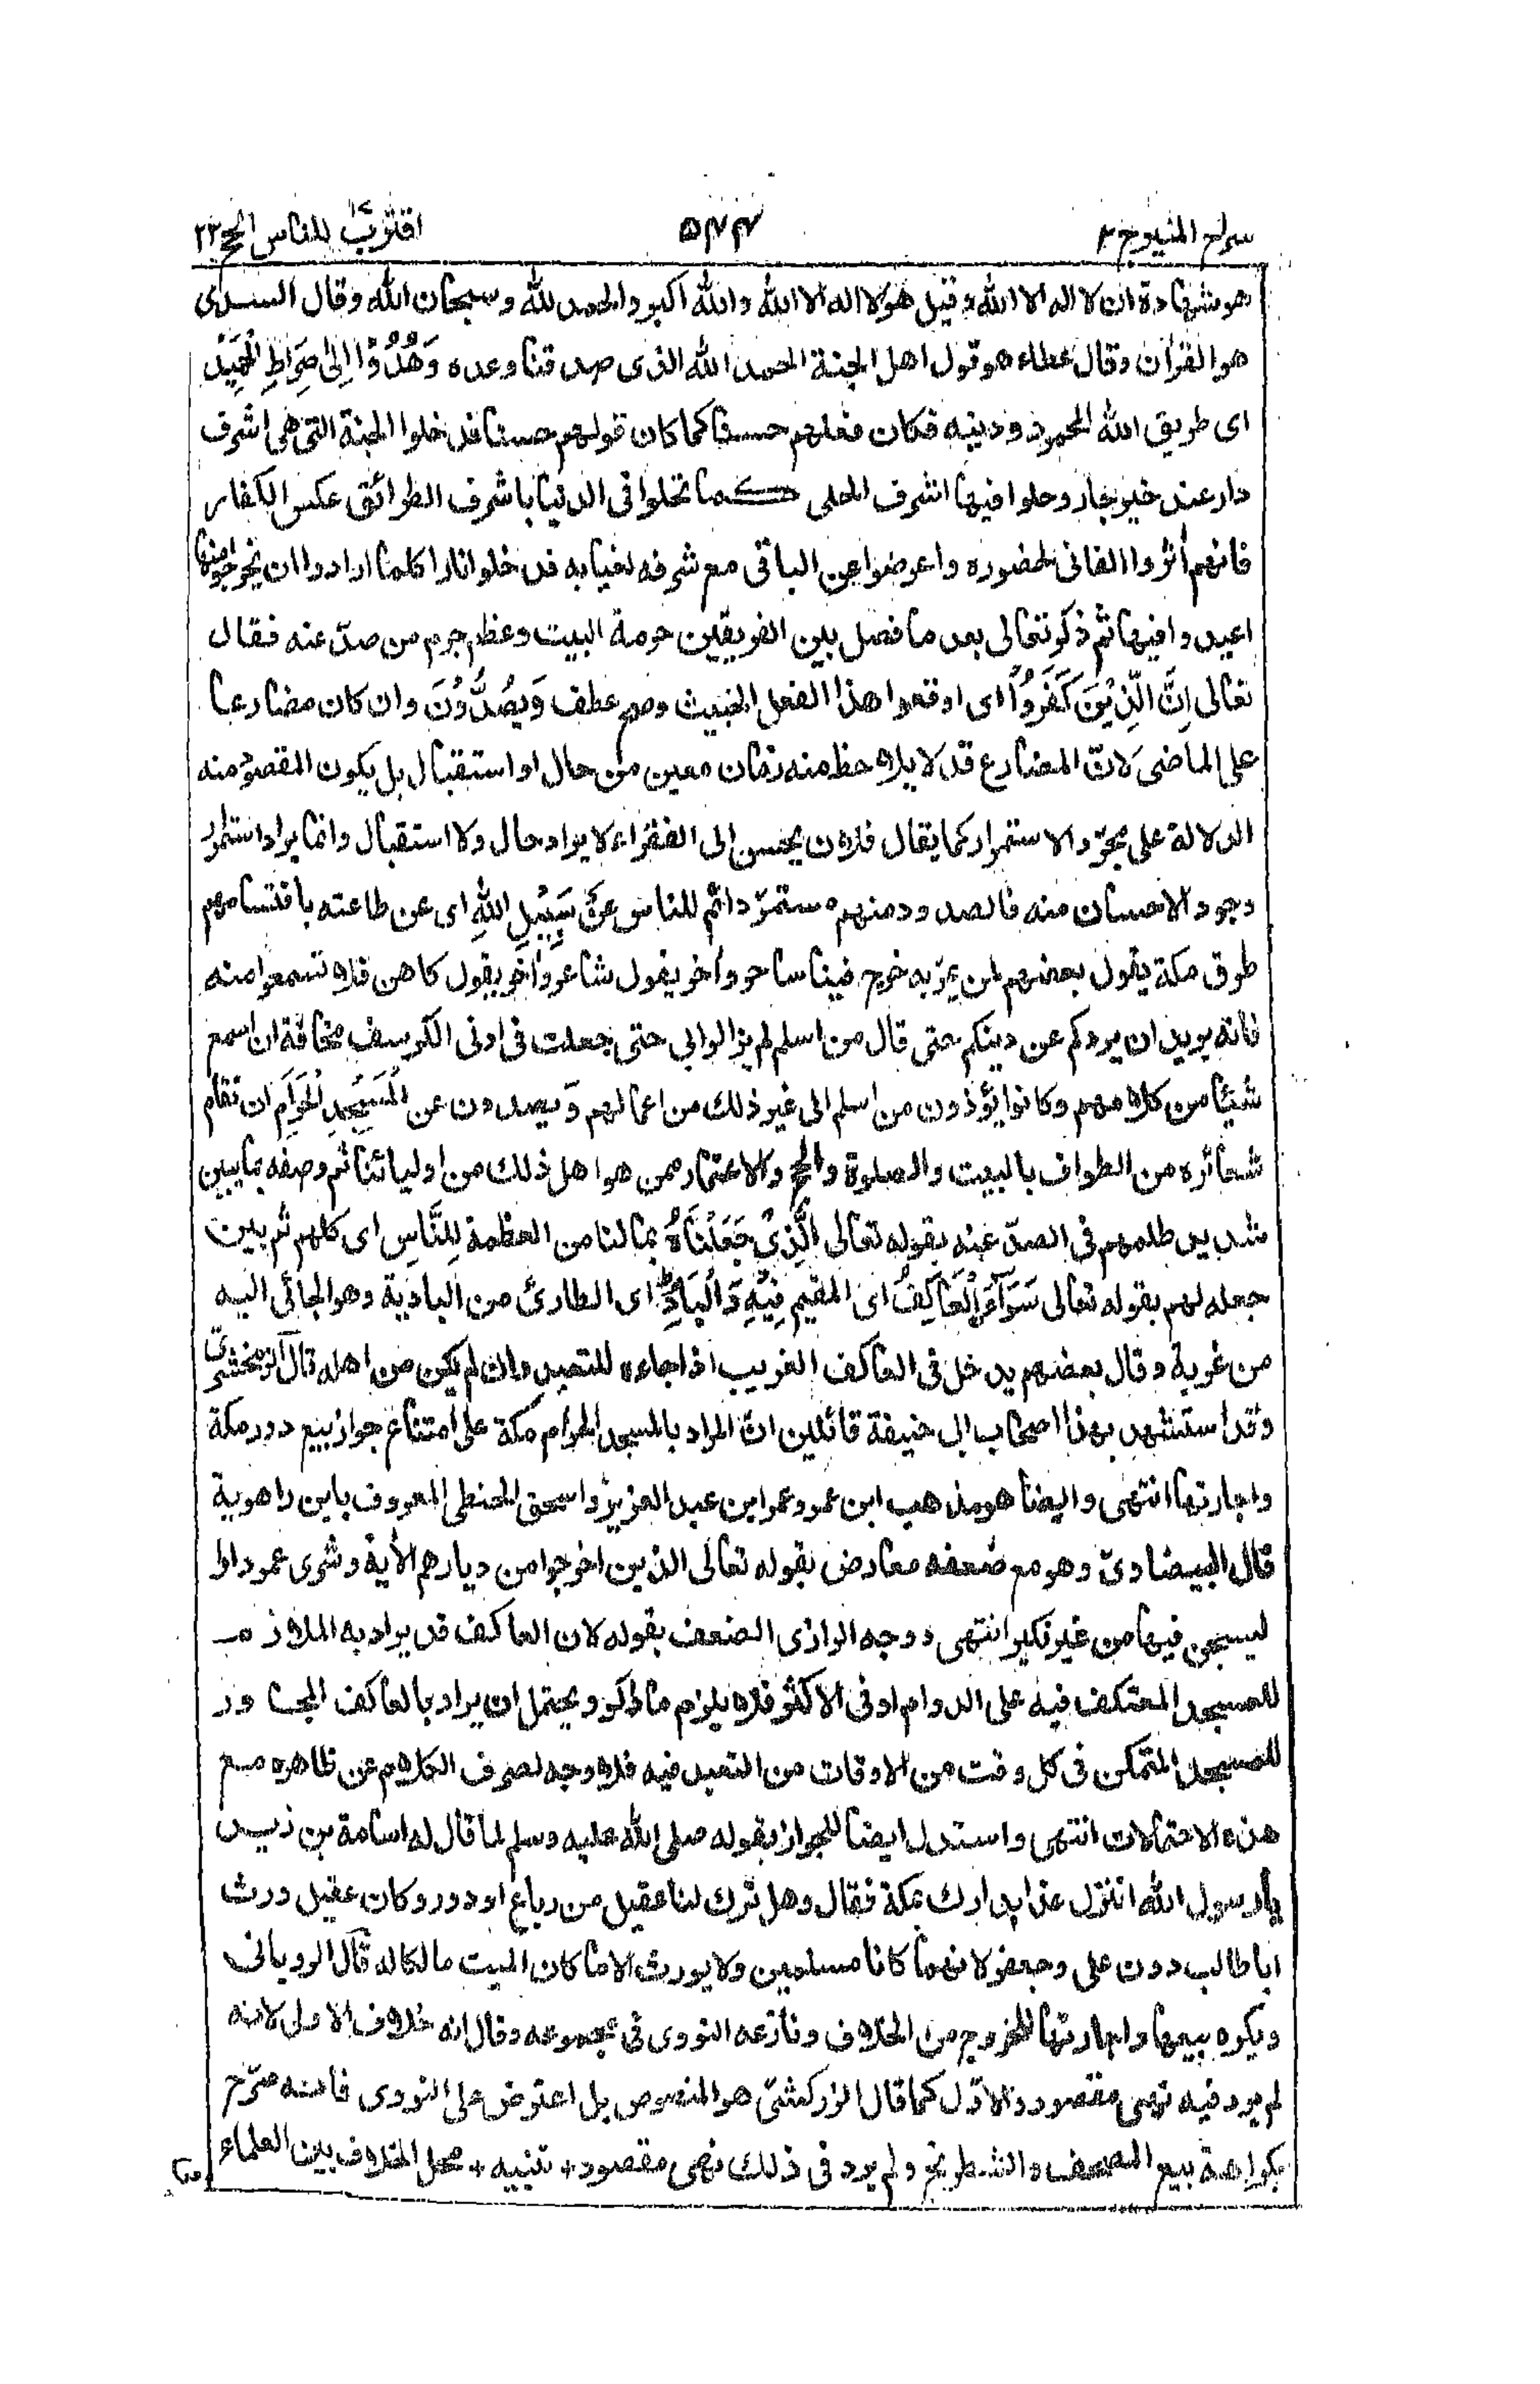 سراج المنير ج ٢
٥٤٤
اقترب ١٧ للناس الحج ٢٢
هو شهادة ان لا اله الا الله وقيل هو لا اله الا الله والله اكبر والحمد لله وسبحان الله وقال السدى
هو القرآن وقال عطاء هو قول اهل الجنة الحمد الله الذى صدقنا وعده وَهُدُوْٓا اِلٰى صِرَاطِ الْحَمِيْدِ
اى طريق الله المحمود ودينه فكان فعلهم حسنا كما كان قولهم حسنا فدخلوا الجنة التى هى اشرف
دار عند خير جار وحلوا فيها اشرف الحلى كما تحلوا فى الدنيا باشرف الطرائق عكس الكفار
فانهم أثروا الفانى لحضوره واعرضوا عن الباقى مع شرفه لغيابه فدخلوا نارا كلما ارادوا ان يخرجوا منها
اعيدوا فيها ثم ذكر تعالى بعد ما فصل بين الفريقين حرمة البيت وعظم جرم من صدّ عنه فقال
تعالى اِنَّ الَّذِيْنَ كَفَرُوْا اى اوقعوا هذا الفعل الخبيث وصح عطف وَيَصُدُّوْنَ وان كان مضارعا
على الماضى لانّ المضارع قد لا يلاحظ منه زمان معين من حال او استقبال بل يكون المقصود منه
الدلالة على مجرّد الاستمرار كما يقال فلان يحسن الى الفقراء لا يراد حال ولا استقبال وانما يراد استمرار
وجود الاحسان منه فالصدود منهم مستمرّ دائم للناس عَنْ سَبِيْلِ اللهِ اى عن طاعته باقتسامهم
طرق مكة يقول بعضهم لمن يمرّ به خرج فينا ساحر وآخر يقول شاعر وآخر يقول كاهن فلا تسمعوا منه
فانه يريد ان يردكم عن دينكم حتى قال من اسلم لم يزالوا بى حتى جعلت فى اذنى الكرسف مخافة ان اسمع
شيئا من كلامهم وكانوا يؤذون من اسلم الى غير ذلك من اعمالهم وَيصدون عن الْمَسْجِدِ الْحَرَامِ ان تقام
شعائره من الطواف بالبيت والصلوة والحج والاعتمار ممن هو اهل ذلك من اوليائنا ثم وصفه بما يبين
شديد ظلمهم فى الصدّ عنه بقوله تعالى الَّذِىْ جَعَلْنَاهُ بما لنا من العظمة لِلنَّاسِ اى كلهم ثم بين
جعله لهم بقوله تعالى سَوَآءَنِ الْعَاكِفُ اى المقيم فِيْهِ وَالْبَادِ اى الطارئ من البادية وهو الجائى اليه
من غربة وقال بعضهم يدخل فى العاكف الغريب اذا جاءه للتعبد وان لم يكن من اهله قال الزمخشرىّ
وقد استشهد بهذا اصحاب ابى حنيفة قائلين انّ المراد بالمسجد الحرام مكة على امتناع جواز بيع دور مكة
واجارتها انتهى وايضا هو مذهب ابن عمر وعمر ابن عبد العزيز واسحق الحنظلى المعروف بابن راهوية
قال البيضاوىّ وهو مع ضعفه معارض بقوله تعالى الذين اخرجوا من ديارهم الأية وشرى عمر دارا
ليسجن فيها من غير نكير انتهى ووجه الرازى الضعف بقوله لان العاكف قد يراد به الملازم
للمسجد المعتكف فيه على الدوام او فى الاكثر فلا يلزم ما ذكر ويحتمل ان يراد بالعاكف المجاور
للمسجد المتمكن فى كل وقت من الاوقات من التعبد فيه فلا وجه لصرف الكلام عن ظاهره مع
هذه الاحتمالات انتهى واستدل ايضا للجواز بقوله صلى الله عليه وسلم لما قال له اسامة بن زيد
يا رسول الله اتنزل غدا بدارك بمكة فقال وهل ترك لنا عقيل من رباع او دور وكان عقيل ورث
ابا طالب دون على وجعفر لانهما كانا مسلمين ولا يورث الا ما كان الميت مالكا له قال الرويانى
ويكره بيعها واجارتها للخروج من الخلاف ونازعه النووى فى مجموعه وقال انه خلاف الاولى لانه
لم يرد فيه نهى مقصود والاوّل كما قال الزركشىّ هو المنصوص بل اعترض على النووى فانه صرّح
بكراهة بيع المصحف والشطرنج ولم يرد فى ذلك نهى مقصود + تنبيه + محل الخلاف بين العلماء